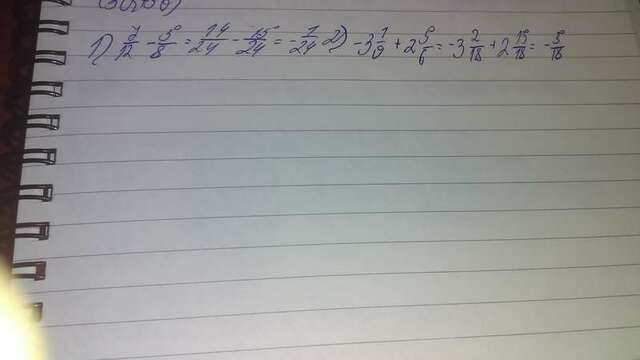 1) 7/12 - 5/8 = 14/24 - 15/24 = - 1/24 2) -3 1/9 + 2 5/6 = -3 2/18 + 2 15/18 = - 5/18